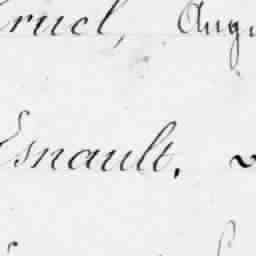 ruel, Aug
Esnault,